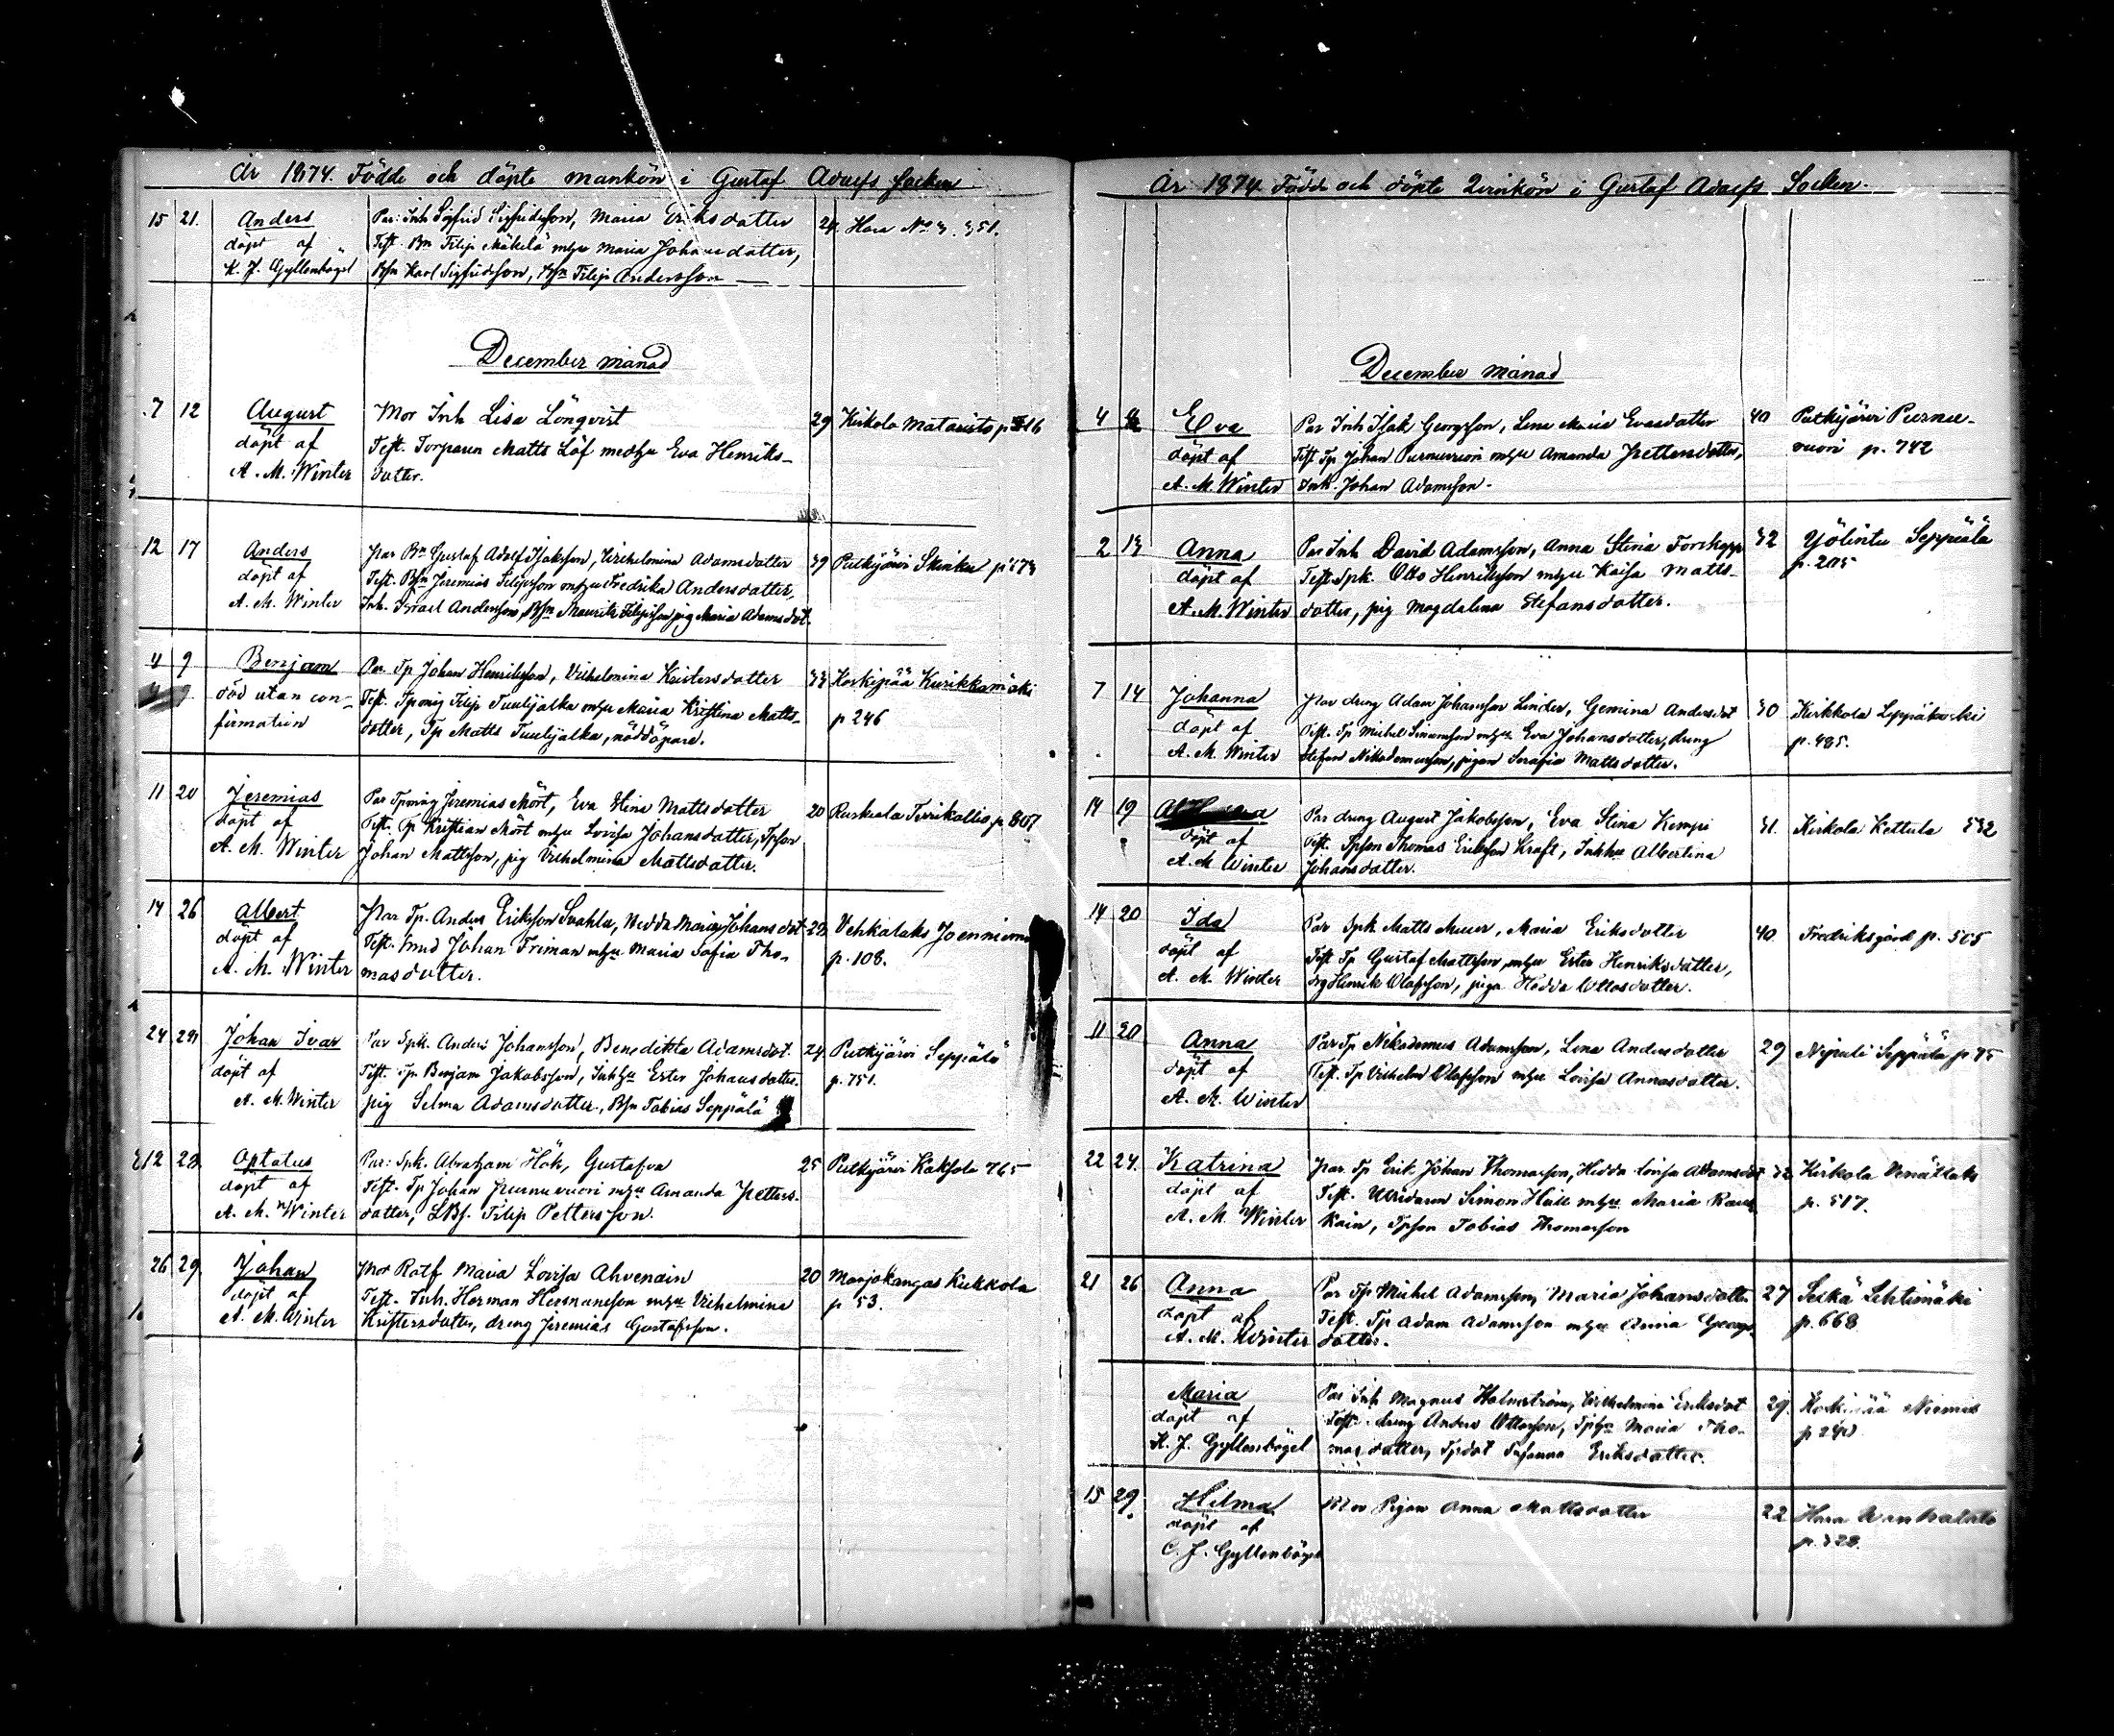 År 1874. Födde och döpte mankön i Gustaf Adolfs Socken.
15 21. Anders Par: Inh Sigfrid Sigfridsson, Maria Eriksdotter 24. Hara No 3. 351.
döpt af Test. Bn Filip Mäkelä mhu Maria Johansdotter,
K. J. Gyllenbögel Bsn Karl Sigfridsson, Bsn Filip Andersson
December månad
7 12 August Mor Inh Lisa Lönqvist 29 Kirkola Mataristo
döpt af Test. Torparen Matts Löf medhu Eva Henriks-
A. M. Winter dotter.
12 17 Anders Par Bn Gustaf Adolf Isaksson, Wilhelmina Adamsdotter 39 Putkijärvi Skinku
döpt af Test. Bsn Jeremias Filipsson mhu Fredrika Andersdotter,
A. M. Winter Inh. Israel Andersson, Bsn Maurits Filipsson pig Maria Adamsdot.
4 9 Benjam Par. Tp Johan Henriksson, Vilhelmina Kristersdotter 33 Koskipää Kurikkamäki
död utan con- Test. Tpmåg Filip Tuulijalka mhu Maria Kristina Matts- p 246
firmation dotter, Tp Matts Tuulijalka, nöddöpare.
11 20 Jeremias Par Tpmåg Jeremias Mört, Eva Stina Mattsdotter 20 Ruskeala p 807
döpt af Test. Tp Kristian Mört mhu Lovisa Johansdotter, Tpson
A. M. Winter Johan Mattsson, pig Vilhelmina Mattsdotter.
14 26 Albert Par Tp. Anders Eriksson Hedda Maria Johansdot 23 Vehkalaks Joenniemi
döpt af Test. Smed Johan Friman mhu Maria Sofia Tho- p. 108.
A. M. Winter masdotter.
24 29 Johan Ivar Par Spk. Anders Johansson, Benedikta Adamsdot. 24 Putkijärvi Seppälä
döpt af Test. Tp Benjam Jakobsson, Inhhu Ester Johansdotter. p. 751.
A. M. Winter pig Selma Adamsdotter, Bsn Tobias Seppälä
12 23 Optatus Par: Spk. Abraham Hök, Gustafva 25 Putkijärvi Kaksola 765
döpt af Test. Tp Johan Purnuvuori mhu Amanda Petters-
A. M. Winter dotter, LBs. Filip Pettersson.
26 29. Johan Mor Maria Lovisa Ahvenain 20 Marjokangas Kukkola
döpt af Test. Inh. Herman Hermansson mhu Vilhelmina p 53.
A. M. Winter Kristersdotter, dreng Jeremias Gustafsson.
År 1874 Födde och döpte Qvinkön i Gustaf Adolfs Socken.
December månad
4 Eva Par Inh Isak Georgsson, Lena Maria Evasdotter 40 Putkijärvi Purnu-
döpt af Test Tp Johan Purnuvuori mhu Amanda Pettersdotter, vuori p. 742
A. M. Winter Inh. Johan Adamsson.
2 13 Anna Par Inh David Adamsson, Anna Stina 32 Yölintu Seppälä
döpt af Test. Spk. Otto Henriksson mhu Kaisa Matts- p. 205
A. M. Winter dotter, pig Magdalena Stefansdotter.
7 14 Johanna Par dreng Adam Johansson Linder, Gemina Andersdot 30 Kirkkola Leppäkoski
döpt af Test. Tp Michel Simonsson mhu Eva Johansdotter, dreng p. 485.
A. M. Winter Stefan Nikodemusson, pigan Serafia Mattsdotter.
14 19 Par dreng August Jakobsson, Eva Stina Kempi 31. Kirkola Kettula 532
döpt af Test. Tpson Thomas Eriksson Kraft, Inhhu Albertina
A. M Winter Johansdotter.
14 20 Ida Par Spk Matts Muur, Maria Eriksdotter 40 Fredriksgård p. 505
döpt af Test Tp Gustaf Mattsson, mhu Ester Henriksdotter,
A. M. Winter drg Henrik Olofsson, piga Hedda Ottosdotter.
11 20 Anna Par Tp Nikodemus Adamsson, Lena Andersdotter 29 Nipuli Seppälä p 75
döpt af Test. Tp Vilhelm Olofsson mhu Lovisa Annasdotter.
A. M. Winter
22 24. Katrina Par. Tp Erik Johan Thomasson, Hedda Lovisa Adamsdot 32 Kirkola Venätlaks
döpt af Test. Utridaren Simon Häll mhu Maria p. 517.
A. M. Winter kain, Tpson Tobias Thomasson
21 26 Anna Par Tp Michel Adamsson, Maria Johansdotter 27 Selkä Lehtimäki
döpt af Test. Tp Adam Adamsson mhu Anna Georgs- p. 668
A. M. Winter dotter.
Maria Par Inh Magnus Holmström, Wilhelmina Eriksdot 29. Koskipää Niemis
döpt af Test. dreng Anders Ottosson, Tphu Maria Tho-
K. J. Gyllenbögel masdotter, Tpdot Susanna Eriksdotter.
15 29. Hilma Mor Pigan Anna Mattsdotter 22 Hara
döpt af p. 328.
C. J. Gyllenbögel